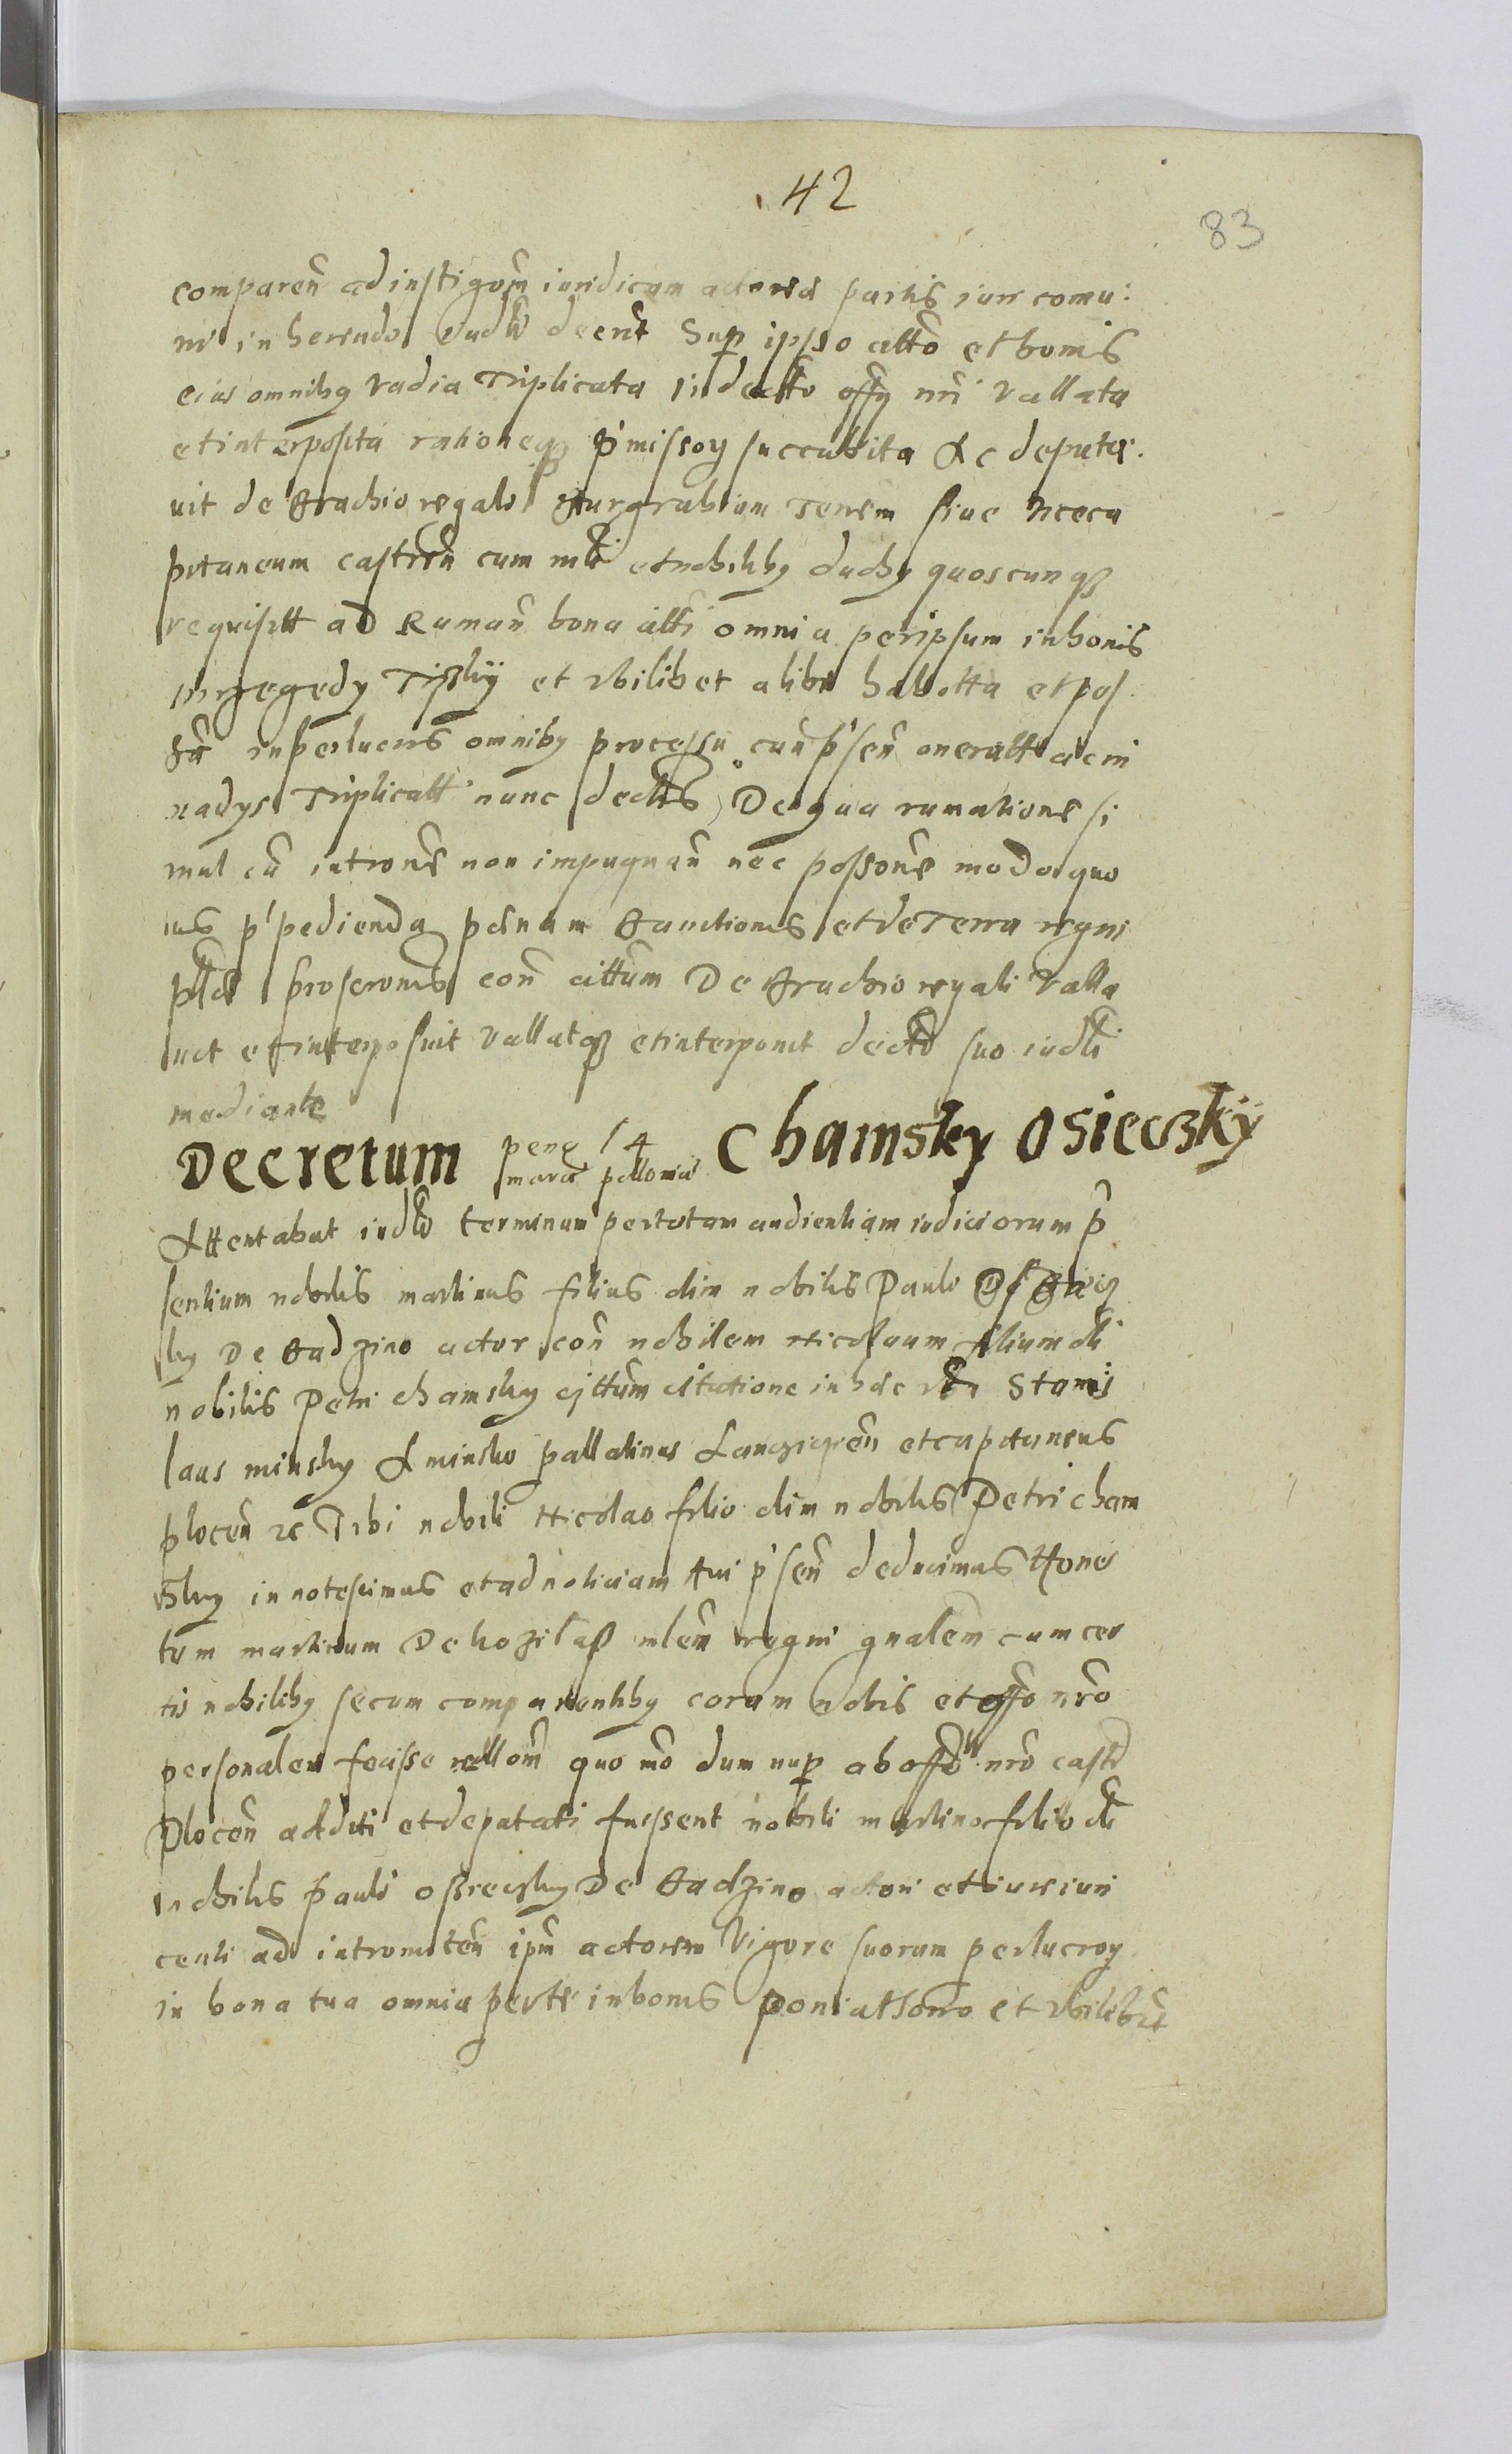 42
83
comparen ad instigom iuridicam actorea partis iure comu:
ni inherendo iudm decrit Sup ipso citto et bonis
eius omnibq Vadia Triplicata in decto offy nri Vallata
et interposita rationeqz p'missoy succubita Ac deputa:
uit de Brachio regali Burgrabium Tenen siue Viceca
pitaneum castren cum mli et nobilibq duobq quoscunqz
requisitt aD Ruman bona citti omnia per ipsum in bonis
et vbilibet alibi habitta et pos
sa in perlucris omnibq processu cum p'sen oneratt ac in
vadys Triplicatt nunc dectis De qua rumatione si
mul cu introne non impugnan nec possone modo quo
uis p'pedienda penam Banctionis et de Terra regni
plde proscronis con cittum De Brachio regali Valla
uit et interposuit Vallatqz et interponit decto suo iudli
mediante
Decretum pene 14 marc pollonic Chamsky Osieczky
Attentabat iudlr terminum per totam audientiam iudiciorum p
sentium nobilis martinus filius olim nobilis Pauli
ky De Badzino actor con nobilem Nicolaum filium oli
nobilis Petri chamsky cittum citatione in hec vba Stanis
laus minsky A minsko pallatinus Lancicien et capitaneus
plocen zc Tibi nobili Nicolao filio olim nobilis Petri cham
sky innotescimus et ad noticiam tui p'sen deducimus Hones
tum martinum De kozilasz mlem regni gnalem cum cer
tis nobilibq secum comparentibq coram nobis et offo nro
personalem fecisse rellom quo mo dum nup ab offo nro castr
Plocen additi et deputati fuissent nobili martino filio oli
nobilis pauli ossieczky De Badzino actori et iure iuri
centi ad intromiten ipm actorem Vigore suorum perlucroy
in bona tua omnia per te in bonis Poniathowo et vbilibet